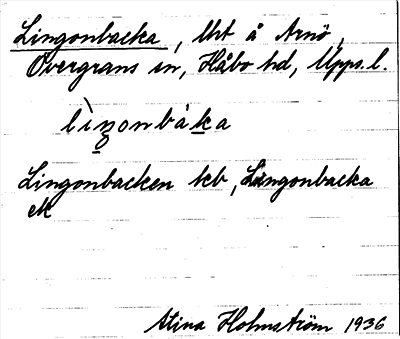 Lingonbacka, lht å Arnö,
Övergrans sn, Håbo hd, Upps. l.
lìŋonbàka
Lingonbacken kb, Lingonbacka
ek
Stina Holmström 1936